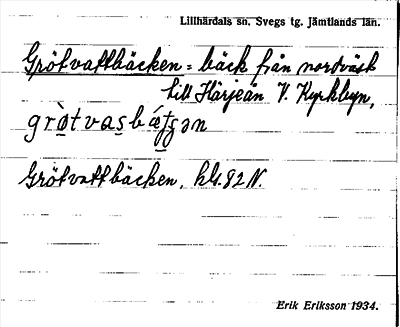 Lillhärdals sn. Svegs tg. Jämtlands län.
Grötvattbäcken = bäck från nordväst
till Härjeån V. Kyrkbyn,
Grötvattbäcken, kbl. 92 N.
Erik Eriksson 1934.